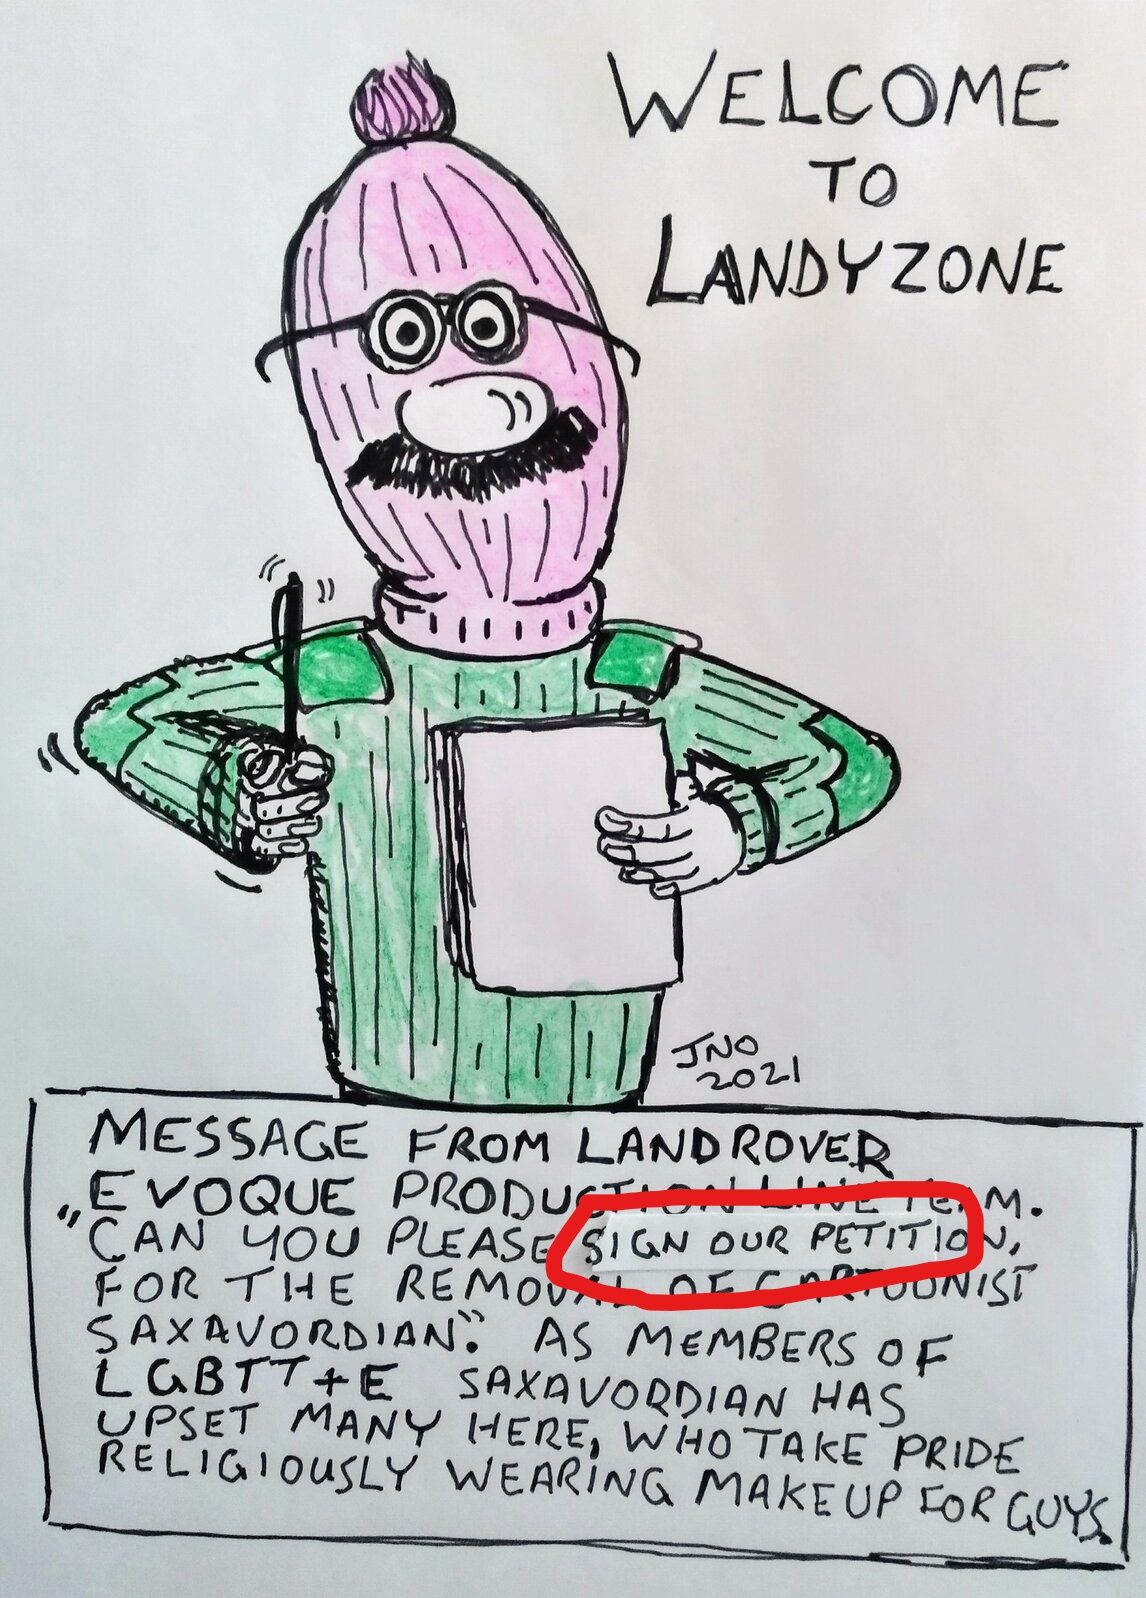 WELCOME
TO
LANDYZONE
JNO
2021
MESSAGE FROM LANDROVER
EVOQUE PRODUCTION LINE TEAM.
„CAN YOU PLEASE SIGN OUR PETITION,
FOR THE REMOVAL OF CARTOONIST
SAXAVORDIAN”. AS MEMBERS OF
LGBTT+E SAXAVORDIAN HAS
UPSET MANY HERE, WHO TAKE PRIDE
RELIGIOUSLY WEARING MAKEUP FOR GUYS.